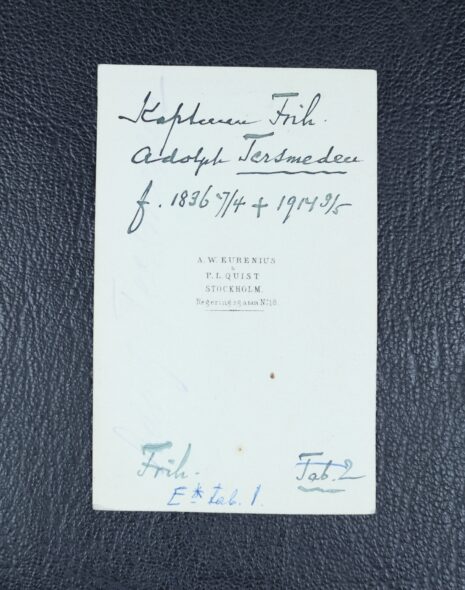 Kaptenen Frih.
Adolph Tersmeden
f. 1836 7/4 + 1914 3/5
A. W. EURENIUS
&
P. L. QUIST
STOCKHOLM.
Regeringsgatan No 18.
Frih.
Tab. 2
E* tab. 1.